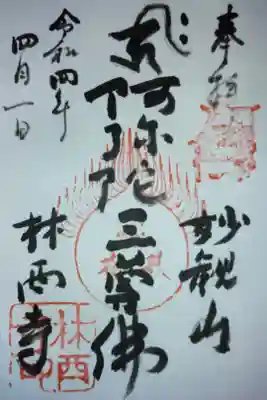 奉拝
妙観山
阿弥陀三尊佛
林西寺
令和四年
四月一日